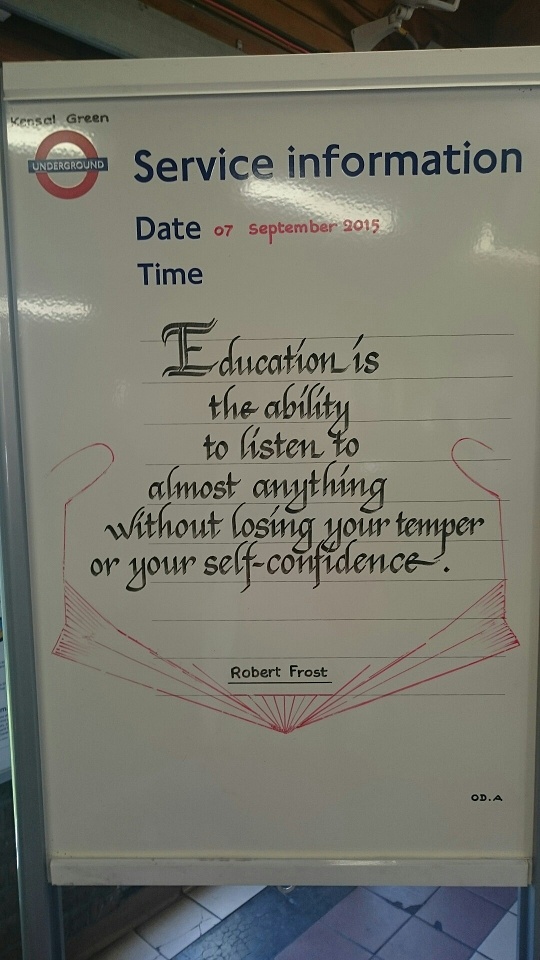 Kensal Green
UNDERGROUND
Service information
Date 07 September 2015
Time
Education is
the ability
to listen to
almost anything
without losing your temper
or your self-confidence.
Robert Frost
OD.A